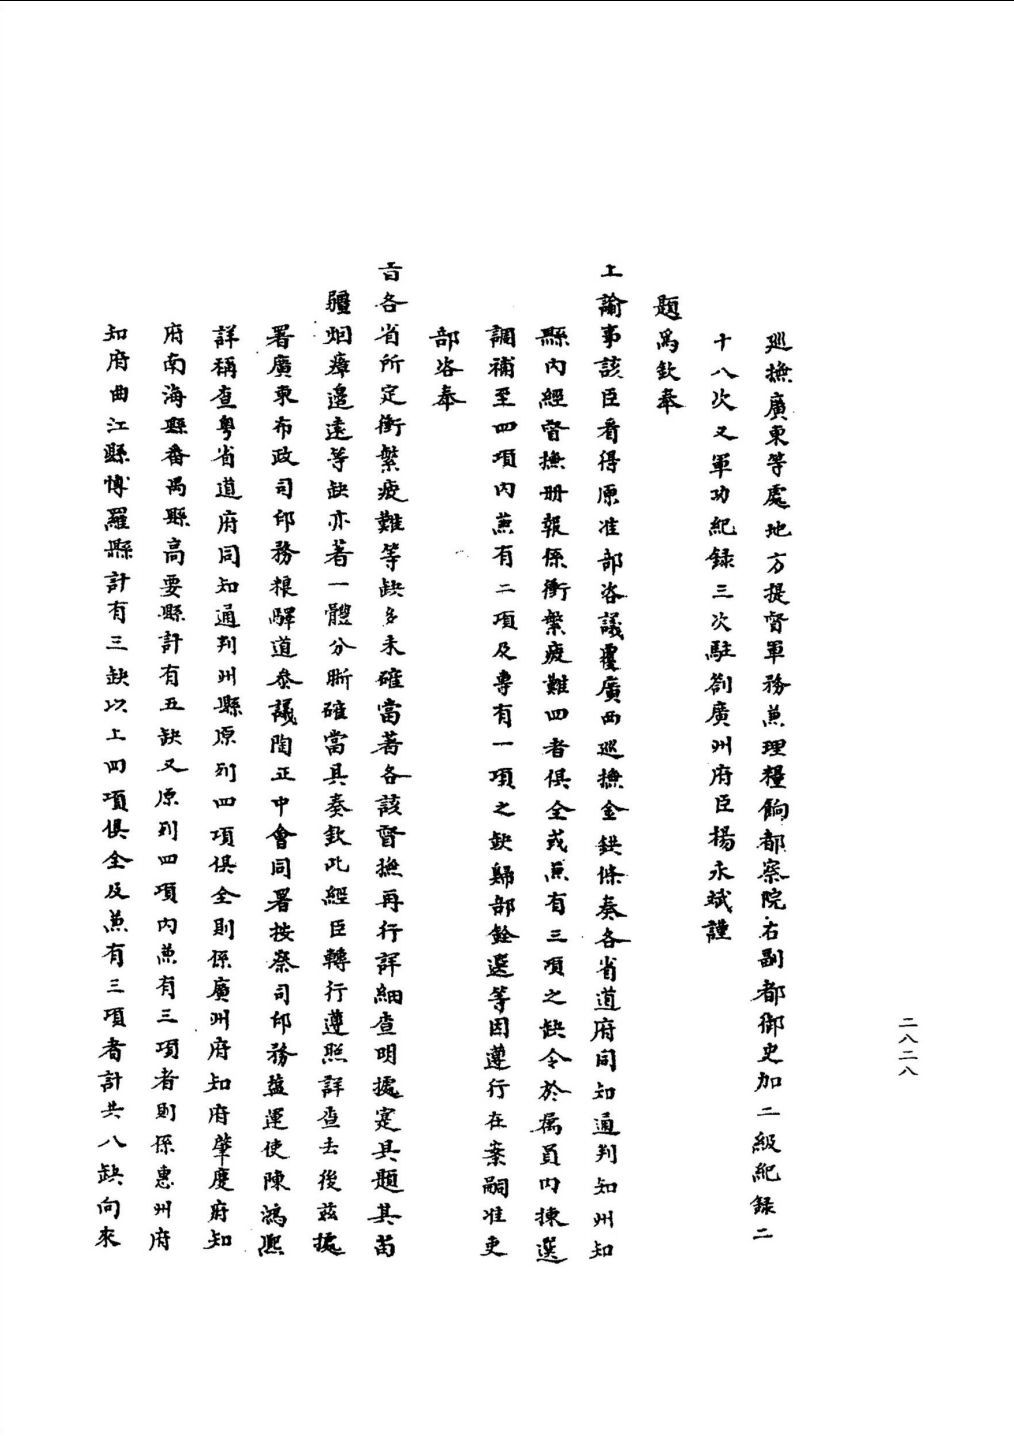 二八二八
巡撫廣東等處地方提督軍務兼理糧餉都察院右副都御史加二級紀錄二
十八次又軍功紀錄三次駐劄廣州府臣楊永斌謹
題為欽奉
上諭事該臣看得原准部咨議覆廣西巡撫金鉷條奏各省道府同知通判知州知
縣內經督撫冊報係衝繁疲難四者俱全或兼有三項之缺令於屬員內揀選
調補至四項內兼有二項及專有一項之缺歸部銓選等因遵行在案嗣准吏
部咨奉
旨各省所定衝繁疲難等缺多未確當著各該督撫再行詳細查明據寔具題其苗
疆烟瘴邊遠等缺亦著一體分晰確當具奏欽此經臣轉行遵照詳查去後茲據
署廣東布政司印務糧驛道叅議陶正中會同署按察司印務鹽運使陳鴻熙
詳稱查粵省道府同知通判州縣原列四項俱全則係廣州府知府肇慶府知
府南海縣番禺縣高要縣計有五缺又原列四項內兼有三項者則係惠州府
知府曲江縣博羅縣計有三缺以上四項俱全及兼有三項者計共八缺向來